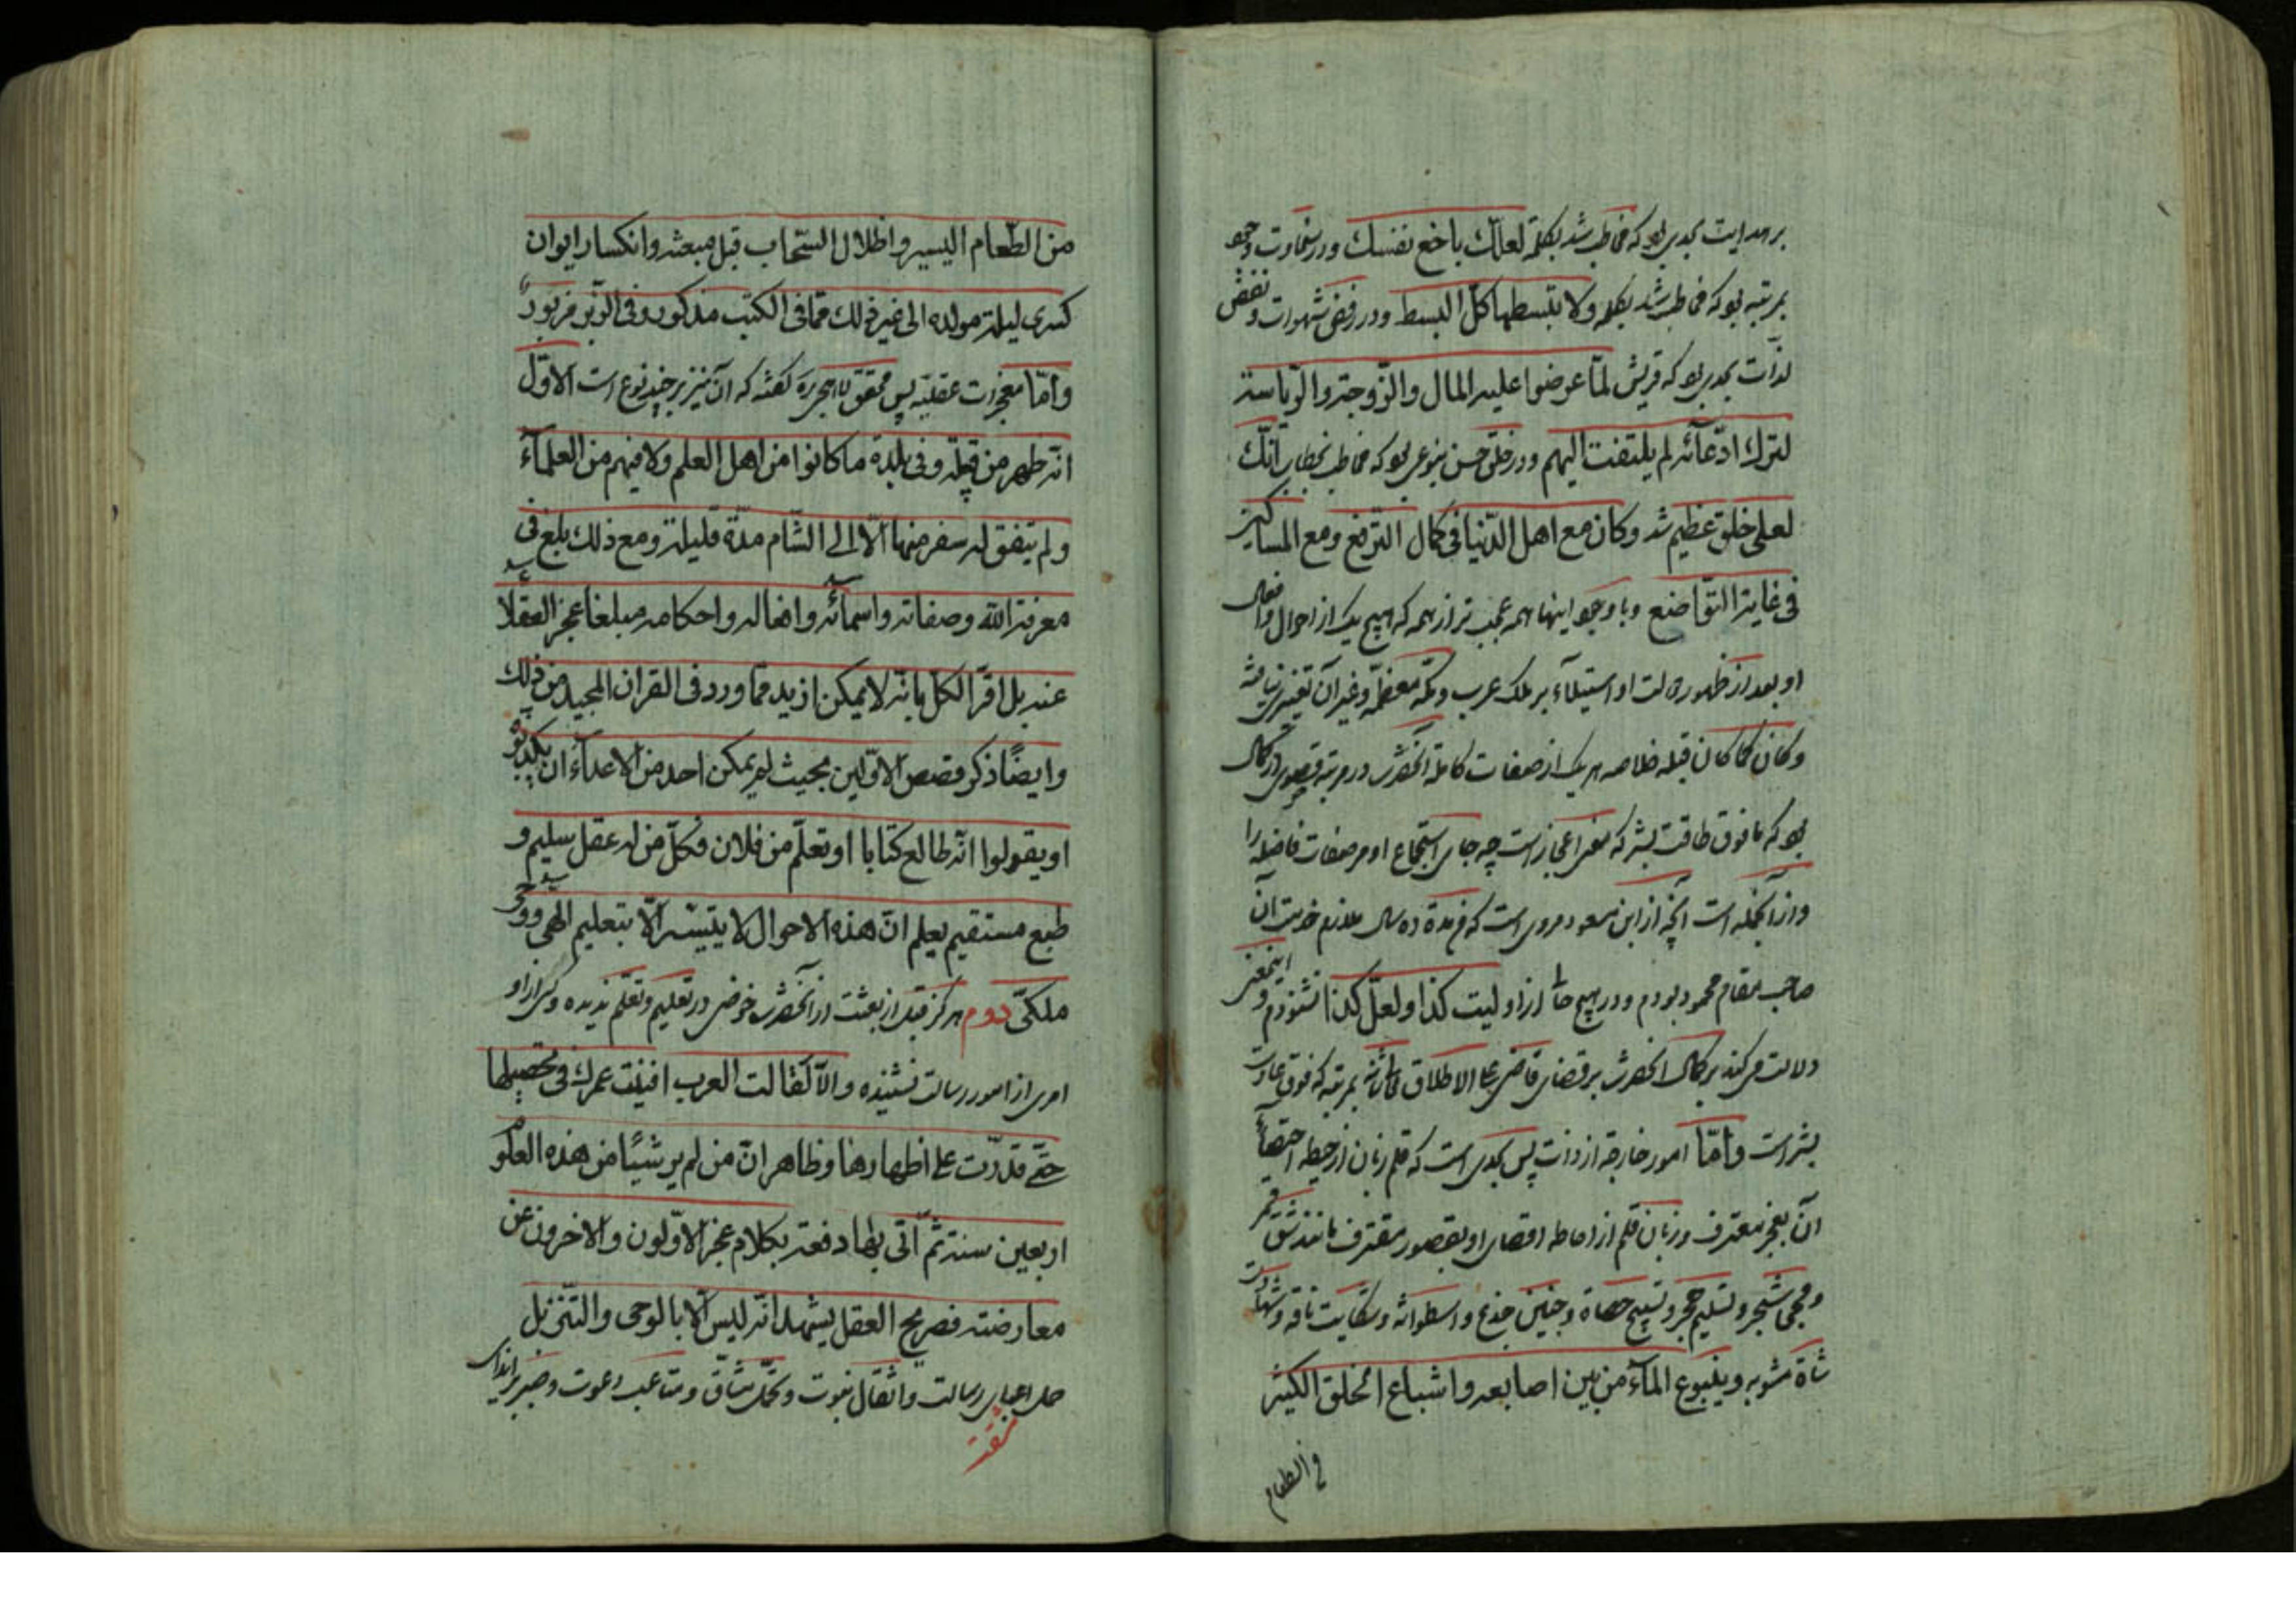 بر هدایت بحدی بود که مخاطب شد بکلمه لعلّك باخع نفسك ودر سخاوت وجود
بمرتبه بود که مخاطب شد بکلمه ولا تبسطها كلّ البسط ودر رفض شهوات ونقض
لذّات بحدی بود که قریش لمّا عرضوا علیه المال والزّوجة والرّیاسة
لترك ادّعائه لم یلتفت الیهم ودر خلق حسن بنوعی بود که مخاطب بخطاب انّك
لعلی خلق عظیم شد وكان مع اهل الدّنیا فی کمال الترفع ومع المساكین
فی غایة التّواضع وبا وجود اینها همه عجب تر از همه که هیچ یک از احوال وافعال
او بعد از ظهور دولت او استیلاء بر ملک عرب ومکّه معظمه وغیر آن تغیر نیافته
وكان كما كان قبله خلاصه هر یک از صفات کامله آنحضرت در مرتبه قصوی در کمال
بود که ما فوق طاقت بشر که معنی اعجاز است چه جای استجماع او مر صفات فاضله را
واز آنجمله است آنچه از ابن مسعود مروی است که من مدة ده سال ملازم خدمت آن
صاحب مقام محمود بودم ودر هیچ حال از او لیت كذا ولعلّ كذا نشنودم واینمعنی
دلالت میکند بر کمال آنحضرت بر قضای قاضی علی الاطلاق بمرتبه که فوق عادت
بشر است وامّا امور خارجه از ذات پس بحدی است که قلم زبان از حیطه احصاء
آن بعجز معترف وزبان قلم از احاطه اقصای او بقصور مقترف مانند شق قمر
ومجی شجر وتسلیم حجر وتسبیح حصاة وحنین جذع واسطوانه وشکایت ناقه وشهادت
شاة مشویه وینبوع المآء من بین اصابعه واشباع الخلق الكثیر
من الطعام
من الطّعام الیسیر واظلال السّحاب قبل مبعثه وانكسار ایوان
كسری لیلة مولده الی غیر ذلك ممّا فی الكتب مذكور وفی الزّبر مزبور
وامّا معجزات عقلیّه پس محقق لاهیجی ره گفته که آن نیز بر چند نوع است الاوّل
انّه ظهر من قبیلة وفی بلدة ما كانوا من اهل العلم ولا فیهم من العلمآء
ولم یتفق له سفر منها الّا الی الشّام مدّة قلیلة ومع ذلك بلغ فی
معرفة الله وصفاته واسمائه وافعاله واحكامه مبلغا عجز العقلاء
عنه بل اقرّ الكل بانّه لا یمكن ازید ممّا ورد فی القران المجید من ذلك
وایضًا ذكر قصص الاوّلین بحیث لم یمكن احد من الاعدآء ان یكذبوه
او یقولوا انّه طالع كتابا او تعلّم من فلان فكلّ من له عقل سلیم و
طبع مستقیم یعلم انّ هذه الاحوال لا یتیسّر الّا بتعلیم الهی ووحی
ملكیّ دوم هرگز قبل از بعثت از آنحضرت خوضی در تعلیم وتعلم ندیده وکس از او
امری از امور رسالت نشنیده والّا لقالت العرب افنیت عمرك فی تحصیلها
حتّی قدرت علی اظهارها وظاهر انّ من لم یر شیئًا من هذه العلوم
اربعین سنة ثمّ اتی بها دفعة بكلام عجز الاوّلون والاخرون عن
معارضته فصریح العقل یشهد انّه لیس الّا بالوحی والتّنزیل
حمل اعبای رسالت واثقال نبوت وتحمّل مشاق ومتاعب دعوت وصبر بر ایذای